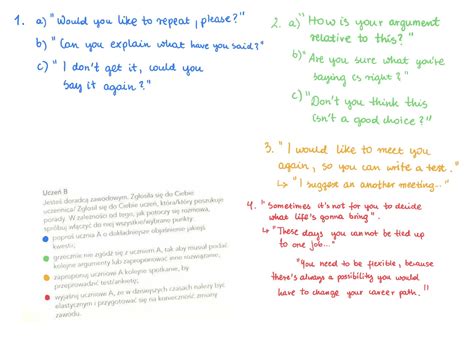 1. a) "Would you like to repeat, please?"
b) "Can you explain what have you said?"
c) "I don't get it, could you
say it again?"
2. a) "How is your argument
relative to this?"
b) "Are you sure what you're
saying is right?"
c) "Don't you think this
isn't a good choice?"
3. "I would like to meet you
again, so you can write a test."
↳ "I suggest an another meeting..."
4. "Sometimes it's not for you to decide
what life's gonna bring".
↳ "These days you cannot be tied up
to one job..."
"You need to be flexible, because
there's always a possibility you would
have to change your career path."
Uczeń B
Jesteś doradcą zawodowym. Zgłosiła się do Ciebie
uczennica/ Zgłosił się do Ciebie uczeń, która/który poszukuje
porady. W zależności od tego, jak potoczy się rozmowa,
spróbuj włączyć do niej wszystkie/wybrane punkty:
poproś ucznia A o dokładniejsze objaśnienie jakiejś
kwestii;
grzecznie nie zgódź się z uczniem A, tak aby musiał podać
kolejne argumenty lub zaproponować inne rozwiązanie;
zaproponuj uczniowi A kolejne spotkanie, by
przeprowadzić test/ankietę;
wyjaśnij uczniowi A, że w dzisiejszych czasach należy być
elastycznym i przygotować się na konieczność zmiany
zawodu.